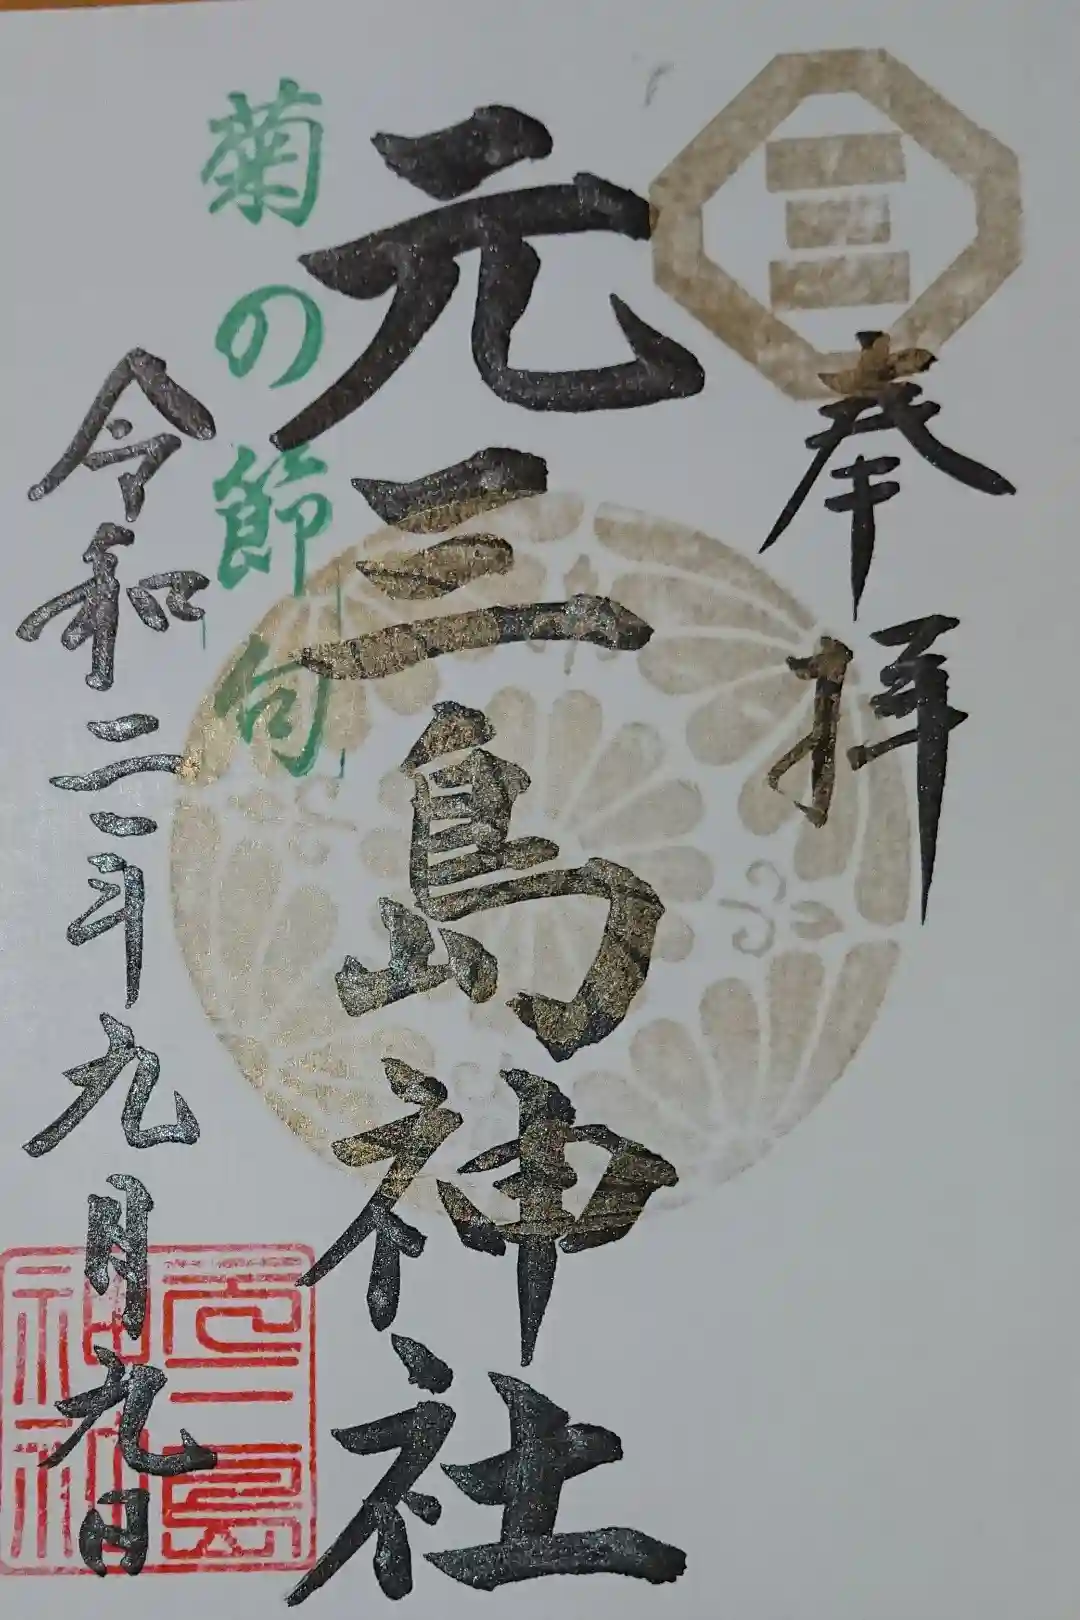 奉拝
元三島神社
菊の節句
令和三年九月九日
元三島
神社